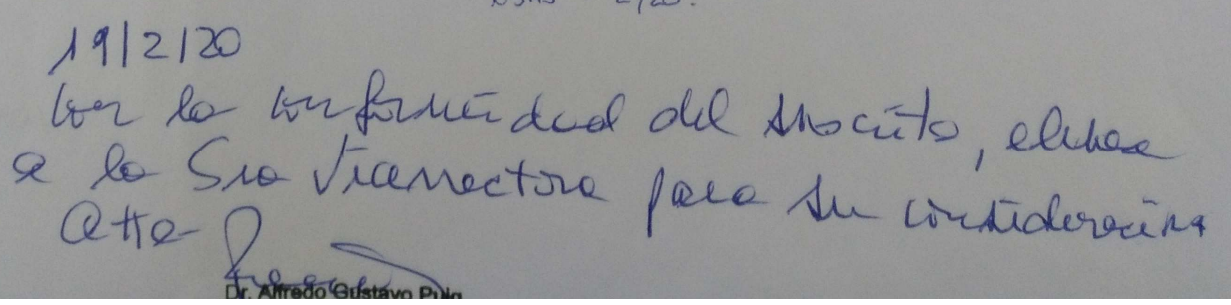 19/2/20
Con la conformidad del suscrito, elevese
a la Sra Vicerrectora para su consideración
Atte
Dr. Alfredo Gustavo Puig